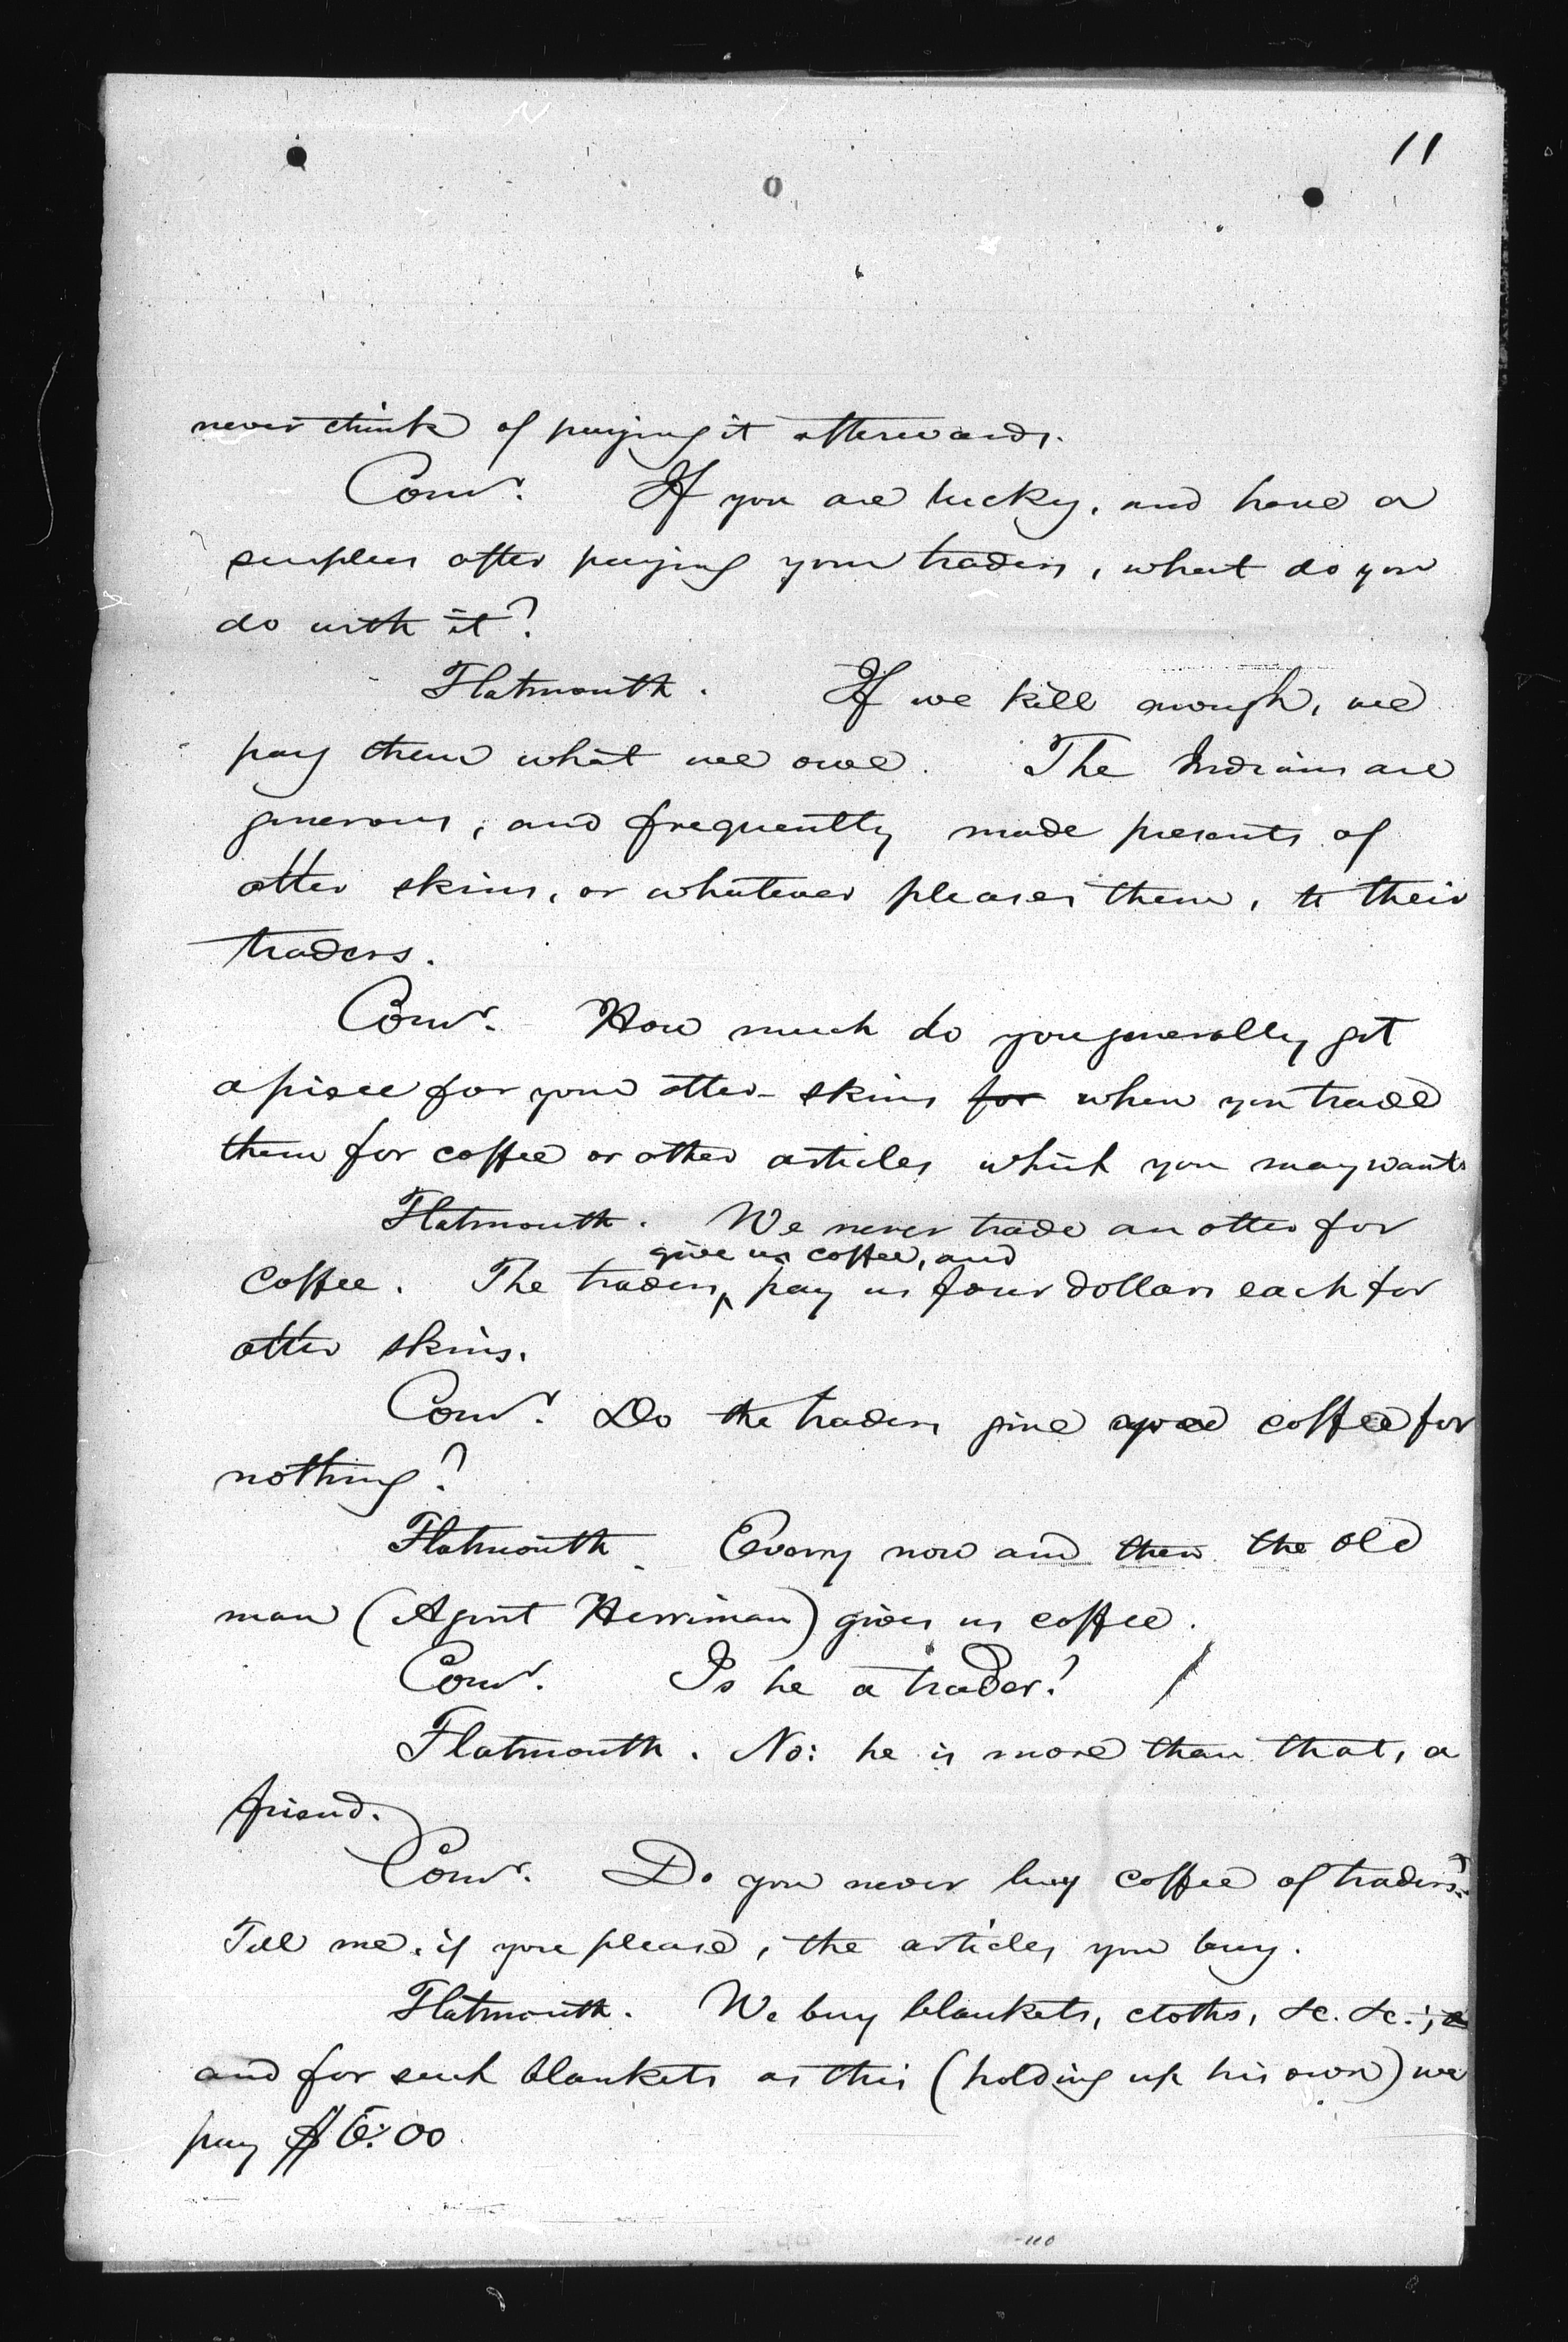 11
never think of paying it afterwards.
Comr. If you are lucky, and have a
surplus after paying your traders, what do you
do with it?
Flatmouth. If we kill enough, we
pay them what we owe. The Indians are
generous, and frequently made presents of
otter skins, or whatever pleases them, to their
traders.
Comr. How much do you generally get
apiece for your otter-skins for when you trade
them for coffee or other articles which you may want
Flatmouth. We never trade an otter for
give us coffee, and
coffee. The traders, pay us four dollars each for
otter skins.
Comr. Do the traders give you coffee for
nothing?
Flatmouth. Every now and then the old
man (Agent Herriman) gives us coffee.
Comr. Is he a trader?
Flatmouth. No: he is more than that, a
friend.
Comr. Do you never buy coffee of traders?
Tell me, if you please, the articles you buy.
Flatmouth. We buy blankets, cloths, &c. &c.;
and for such blankets as this (holding up his own) we
pay $6.00